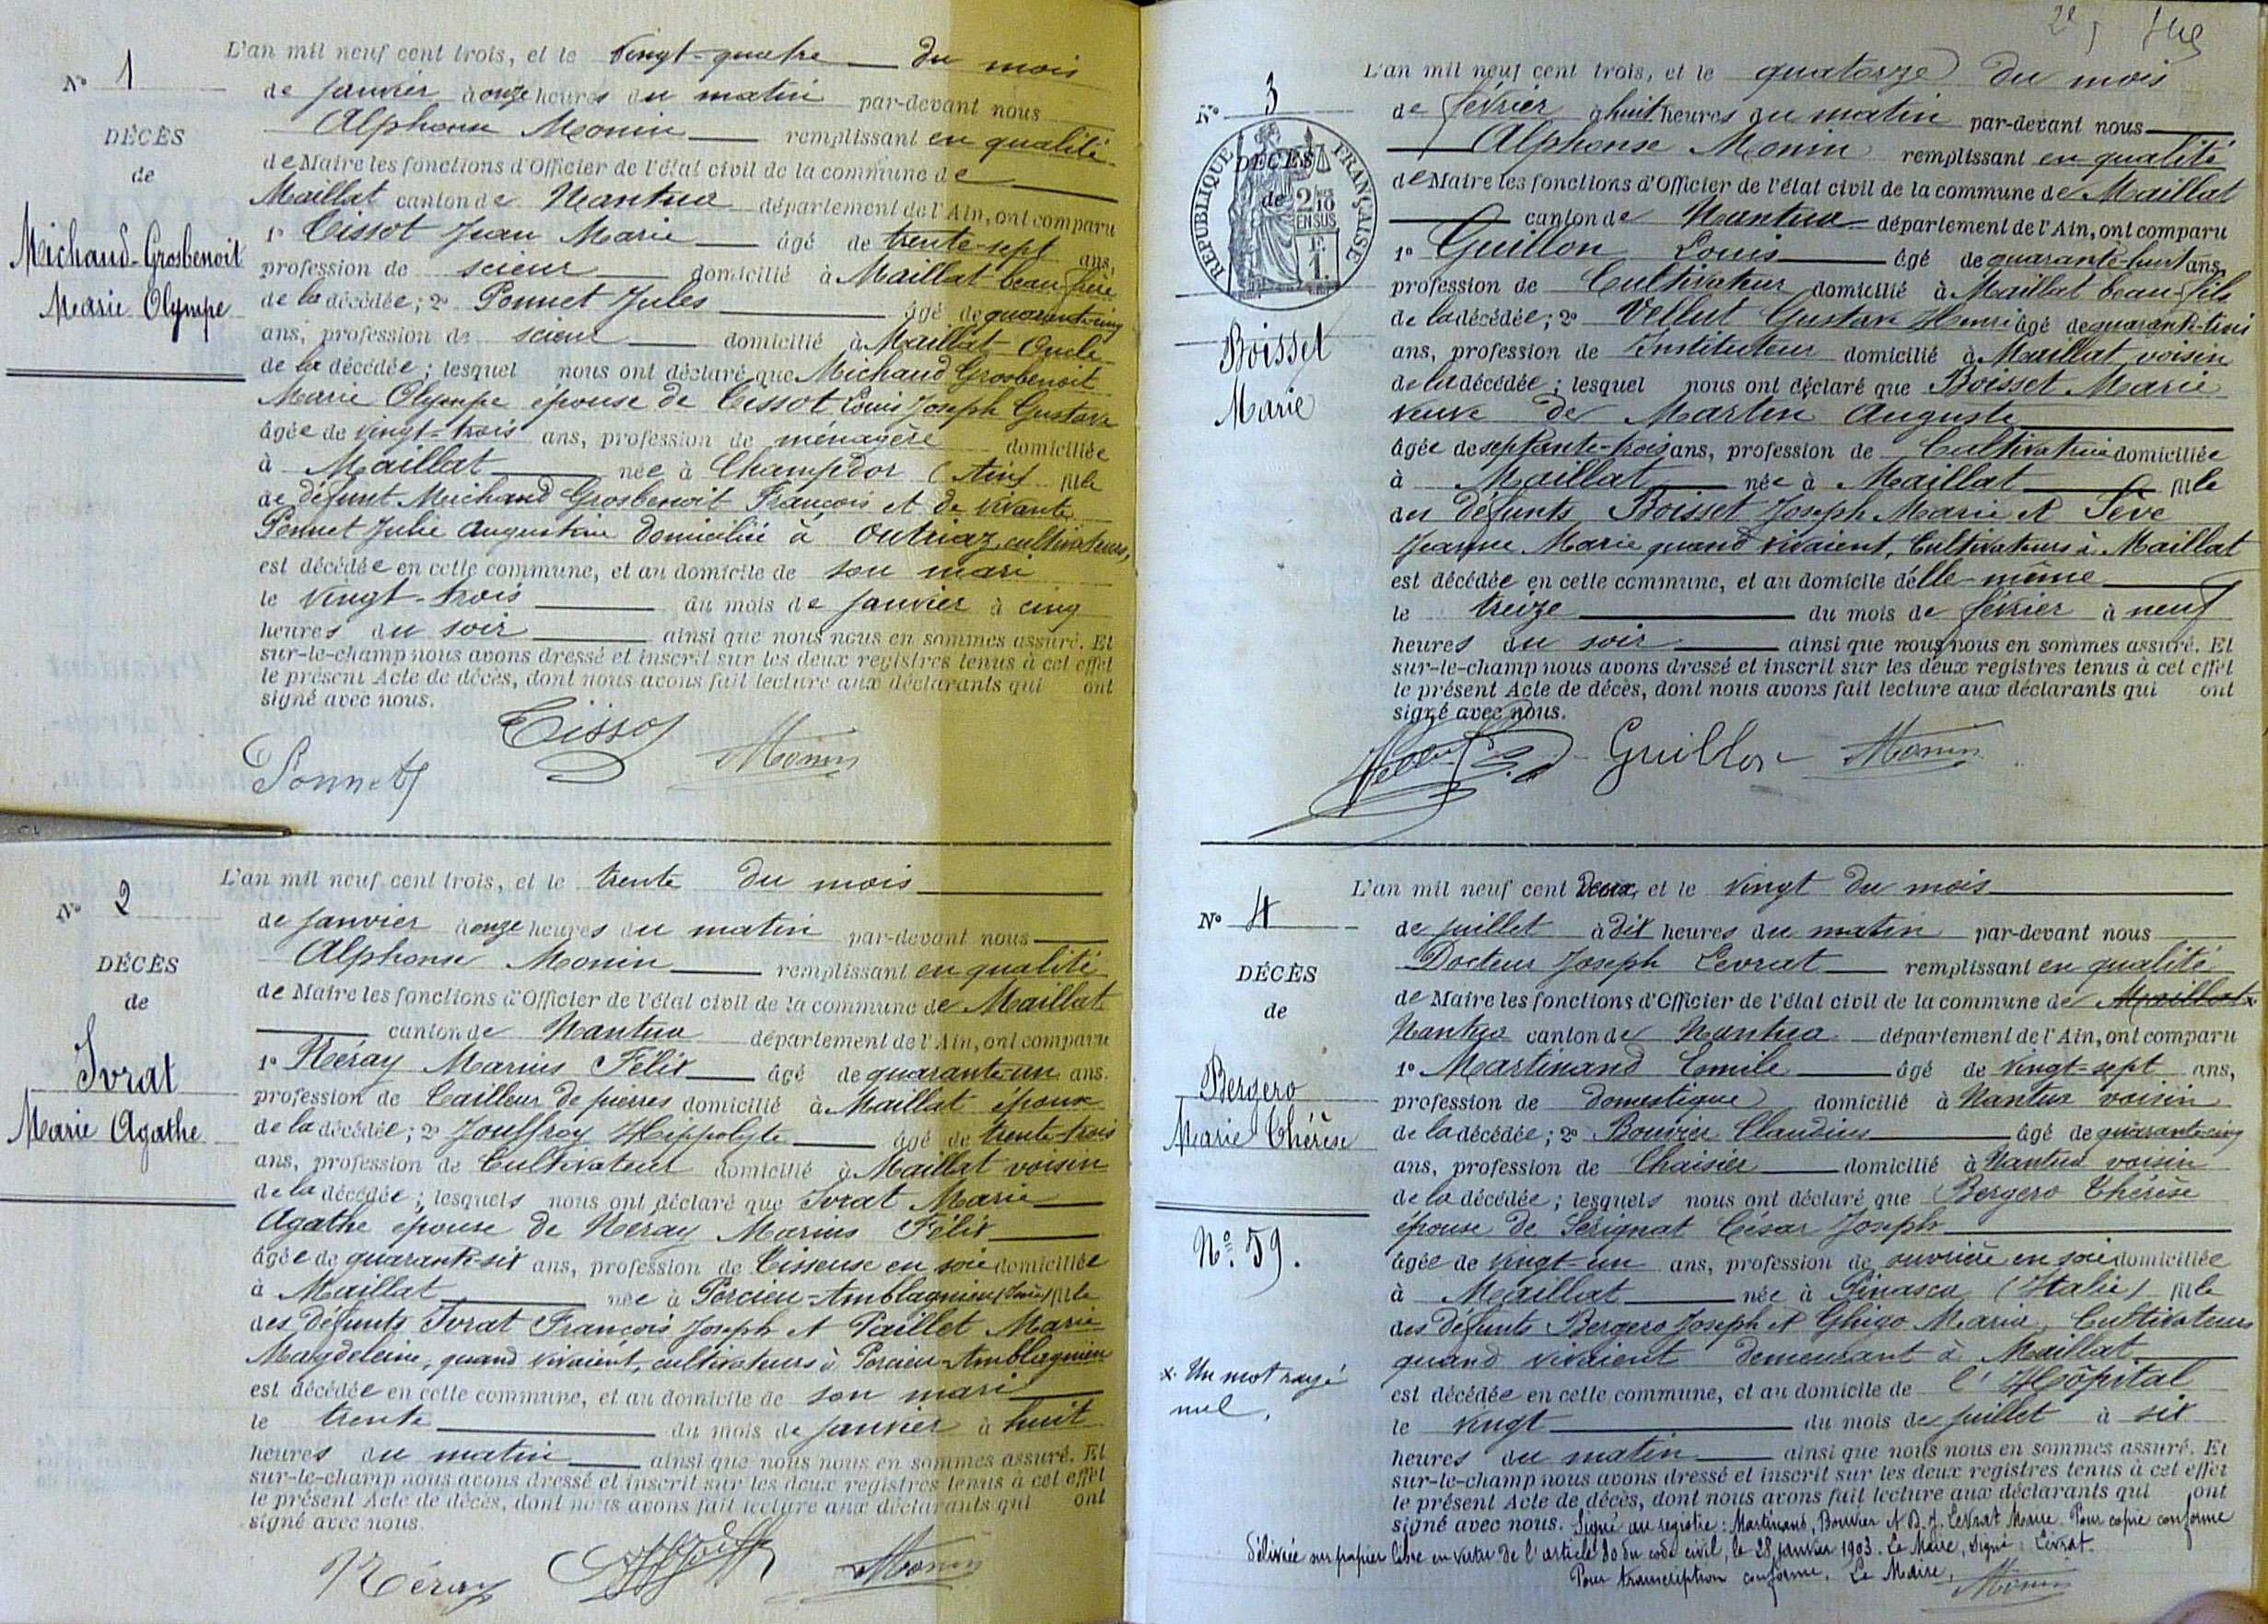 N° 1
DÉCÈS
de
Michaud-Grosbenoit
Marie Olympe
L'an mil neuf cent trois, et le vingt-quatre du mois
de janvier à onze heures du matin par-devant nous
Alphonse Monin remplissant en qualité
de Maire les fonctions d'Officier de l'état civil de la commune de
Maillat canton de Nantua département de l'Ain, ont comparu
1° Tissot Jean Marie âgé de trente-sept ans,
profession de scieur domicilié à Maillat beau frère
de la décédée; 2° Ponnet Jules âgé de quarante-cinq
ans, profession de scieur domicilié à Maillat Oncle
de la décédée; lesquel nous ont déclaré que Michaud Grosbenoit
Marie Olympe épouse de Tissot Louis Joseph Gustave
âgée de vingt-trois ans, profession de ménagère domiciliée
à Maillat née à Champdor (Ain) fille
de défunt Michaud Grosbenoit François et de vivante
Ponnet Julie Augustine domiciliée à Outriaz, cultivateurs,
est décédée en cette commune, et au domicile de son mari
le vingt-trois du mois de janvier à cinq
heures du soir ainsi que nous nous en sommes assuré. Et
sur-le-champ nous avons dressé et inscrit sur les deux registres tenus à cet effet
le présent Acte de décès, dont nous avons fait lecture aux déclarants qui ont
signé avec nous.
Tissot
Ponnet
Monin
N° 2
DÉCÈS
de
Ivrat
Marie Agathe
L'an mil neuf cent trois, et le trente du mois
de janvier à onze heures du matin par-devant nous
Alphonse Monin remplissant en qualité
de Maire les fonctions d'Officier de l'état civil de la commune de Maillat
canton de Nantua département de l'Ain, ont comparu
1° Néray Marius Félix âgé de quarante-un ans.
profession de Tailleur de pierres domicilié à Maillat époux
de la décédée; 2° Jouffroy Hippolyte âgé de trente-trois
ans, profession de Cultivateur domicilié à Maillat voisin
de la décédée; lesquels nous ont déclaré que Ivrat Marie
Agathe épouse de Néray Marius Félix
âgée de quarante-six ans, profession de Tisseuse en soie domiciliée
à Maillat née à Porcieu-Amblagnieu (Isère) fille
des défunts Ivrat François Joseph et Paillet Marie
Magdeleine, quand vivaient, cultivateurs à Porcieu-Amblagnieu
est décédée en cette commune, et au domicile de son mari
le trente du mois de janvier à huit
heures du matin ainsi que nous nous en sommes assuré. Et
sur-le-champ nous avons dressé et inscrit sur les deux registres tenus à cet effet
le présent Acte de décès, dont nous avons fait lecture aux déclarants qui ont
signé avec nous.
Néray
Monin
N° 3
RÉPUBLIQUE FRANÇAISE
DÉCÈS
de
2/10
EN SUS
Boisset
Marie
L'an mil neuf cent trois, et le quatorze du mois
de février à huit heures du matin par-devant nous
Alphonse Monin remplissant en qualité
de Maire les fonctions d'Officier de l'état civil de la commune de Maillat
canton de Nantua département de l'Ain, ont comparu
1° Guillon Louis âgé de quarante-huit ans,
profession de Cultivateur domicilié à Maillat beau-fils
de la décédée; 2° Vellut Gustave Henri âgé de quarante-trois
ans, profession de Instituteur domicilié à Maillat voisin
de la décédée; lesquel nous ont déclaré que Boisset Marie
veuve de Martin Auguste
âgée de septante-trois ans, profession de Cultivatrice domiciliée
à Maillat née à Maillat fille
des défunts Boisset Joseph Marie et Sève
Jeanne Marie quand vivaient, Cultivateurs à Maillat
est décédée en cette commune, et au domicile d'elle-même
le treize du mois de février à neuf
heures du soir ainsi que nous nous en sommes assuré. Et
sur-le-champ nous avons dressé et inscrit sur les deux registres tenus à cet effet
le présent Acte de décès, dont nous avons fait lecture aux déclarants qui ont
signé avec nous.
Guillon
Monin
N° 4
DÉCÈS
de
Bergero
Marie Thérèse
N° 59.
x. Un mot rayé
nul.
L'an mil neuf cent deux, et le vingt du mois
de juillet à dix heures du matin par-devant nous
Docteur Joseph Levrat remplissant en qualité
de Maire les fonctions d'Officier de l'état civil de la commune de Maillat x
Nantua canton de Nantua département de l'Ain, ont comparu
1° Martinand Emile âgé de vingt-sept ans,
profession de domestique domicilié à Nantua voisin
de la décédée; 2° Bouvier Claudius âgé de quarante-cinq
ans, profession de Chaisier domicilié à Nantua voisin
de la décédée; lesquels nous ont déclaré que Bergero Thérèse
épouse de Sérignat César Joseph
âgée de vingt-un ans, profession de ouvrière en soie domiciliée
à Maillat née à Pinasca (Italie) fille
des défunts Bergero Joseph et Ghigo Maria, Cultivateurs
quand vivaient demeurant à Maillat
est décédée en cette commune, et au domicile de l'Hôpital
le vingt du mois de juillet à six
heures du matin ainsi que nous nous en sommes assuré. Et
sur-le-champ nous avons dressé et inscrit sur les deux registres tenus à cet effet
le présent Acte de décès, dont nous avons fait lecture aux déclarants qui ont
signé avec nous. Signé au registre: Martinand, Bouvier et D. J. Levrat Maire. Pour copie conforme
délivrée sur papier libre en vertu de l'article 80 du code civil, le 28 janvier 1903. Le Maire, signé: Levrat.
Pour transcription conforme. Le Maire,
Monin